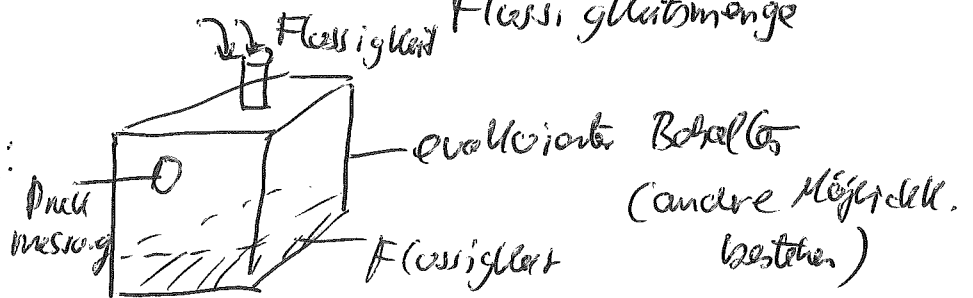 Flüssigkeitsmenge
Flüssigkeit
evakuierter Behälter
(andre Möglichk.
bestehen)
Druck
messung
Flüssigkeit